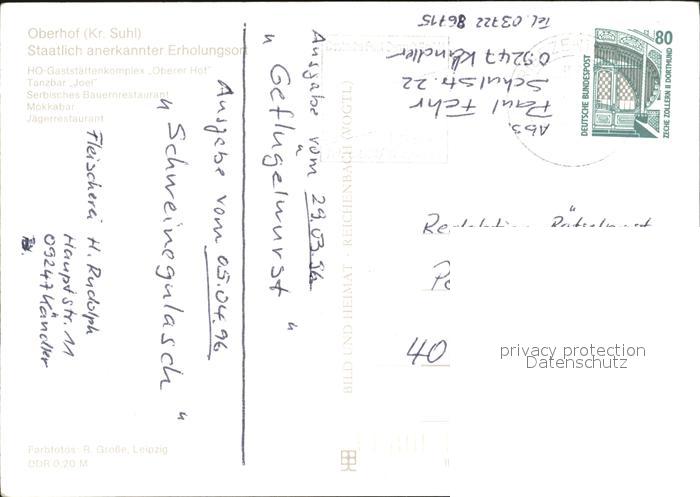 Oberhof (Kr. Suhl)
Staatlich anerkannter Erholungsort
HO-Gaststättenkomplex „Oberer Hof"
Tanzbar „Joel"
Serbisches Bauernrestaurant
Mokkabar
Jägerrestaurant
Fleischerei H. Rudolph
Hauptstr. 11
09247 Kändler
Ausgabe vom 05.04.96
"Schweinegulasch"
Ausgabe vom 29.03.96
"Geflügelwurst"
Farbfotos: R. Große, Leipzig
DDR 0,20 M
BILD UND HEIMAT · REICHENBACH (VOGTL)
Abs.
Paul Fehr
Schulstr. 22
09247 Kändler
Tel. 03722 86715
80
DEUTSCHE BUNDESPOST
ZECHE ZOLLERN II DORTMUND
Redaktion Rätselpost
40
privacy protection
Datenschutz